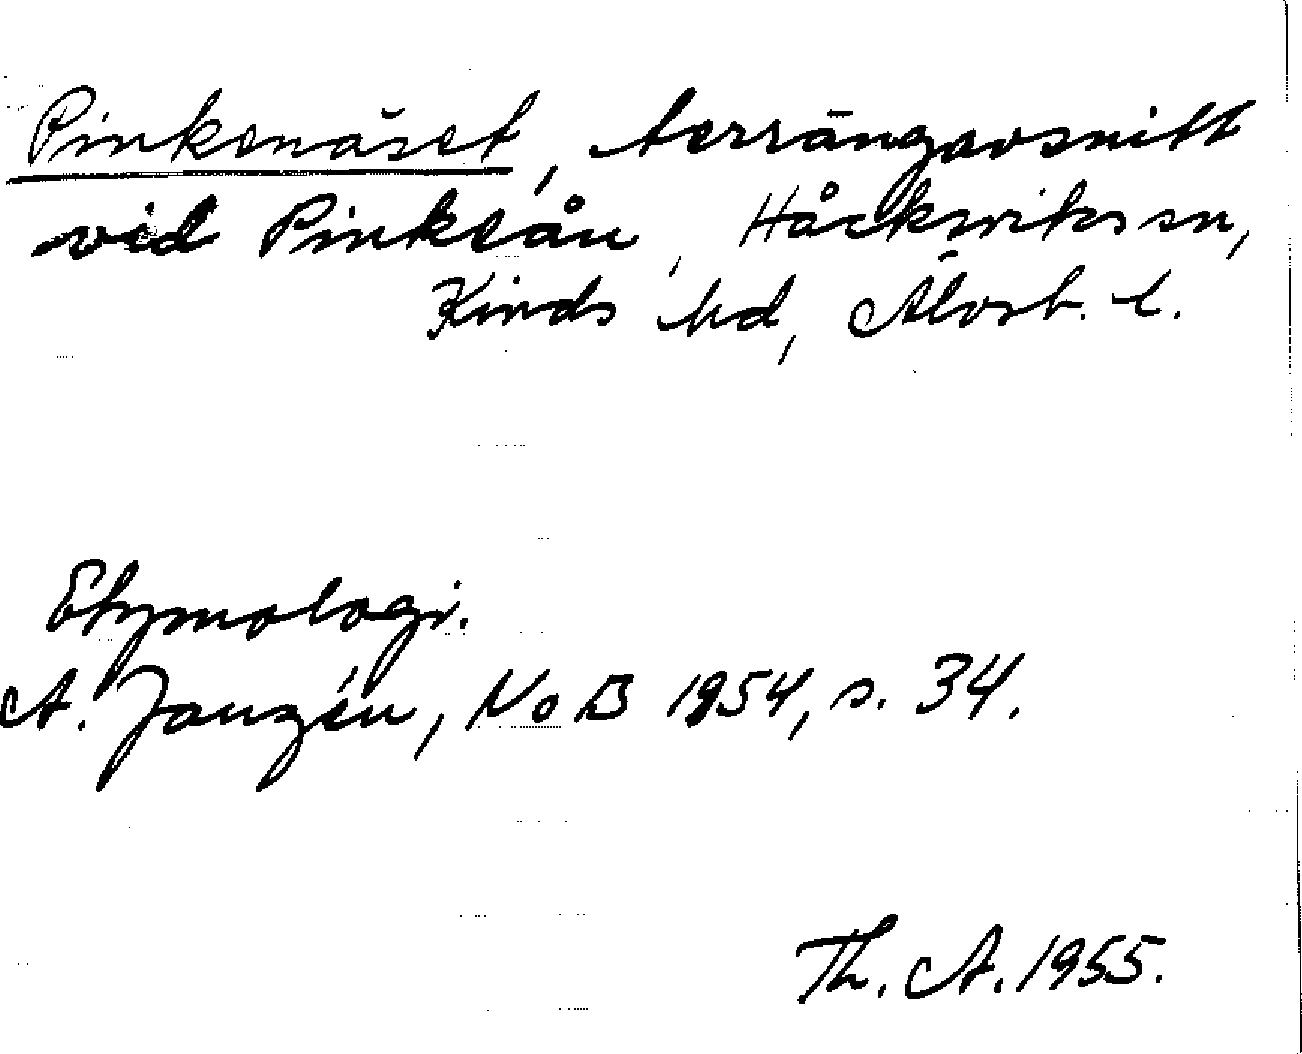 Pinkenäset, terrängavsnitt
vid Pinkeån, Håcksviks sn,
Kinds hd, Älvsb. l.
Etymologi.
A. Janzén, NoB 1954, s. 34.
Th. A. 1955.